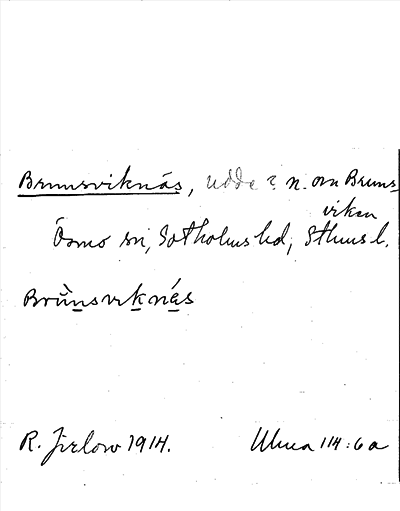 Brunsviknäs, udde? n. om Bruns-
viken
Ösmo sn, Sotholms hd, Sthms l.
Brùnsviknä́s
R. Jirlow 1914. Uhua 114:6a